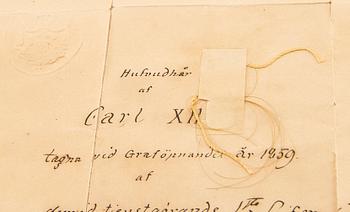 Hufvudhår
af
Carl XII
tagna vid Graföpnandet år 1859.
af